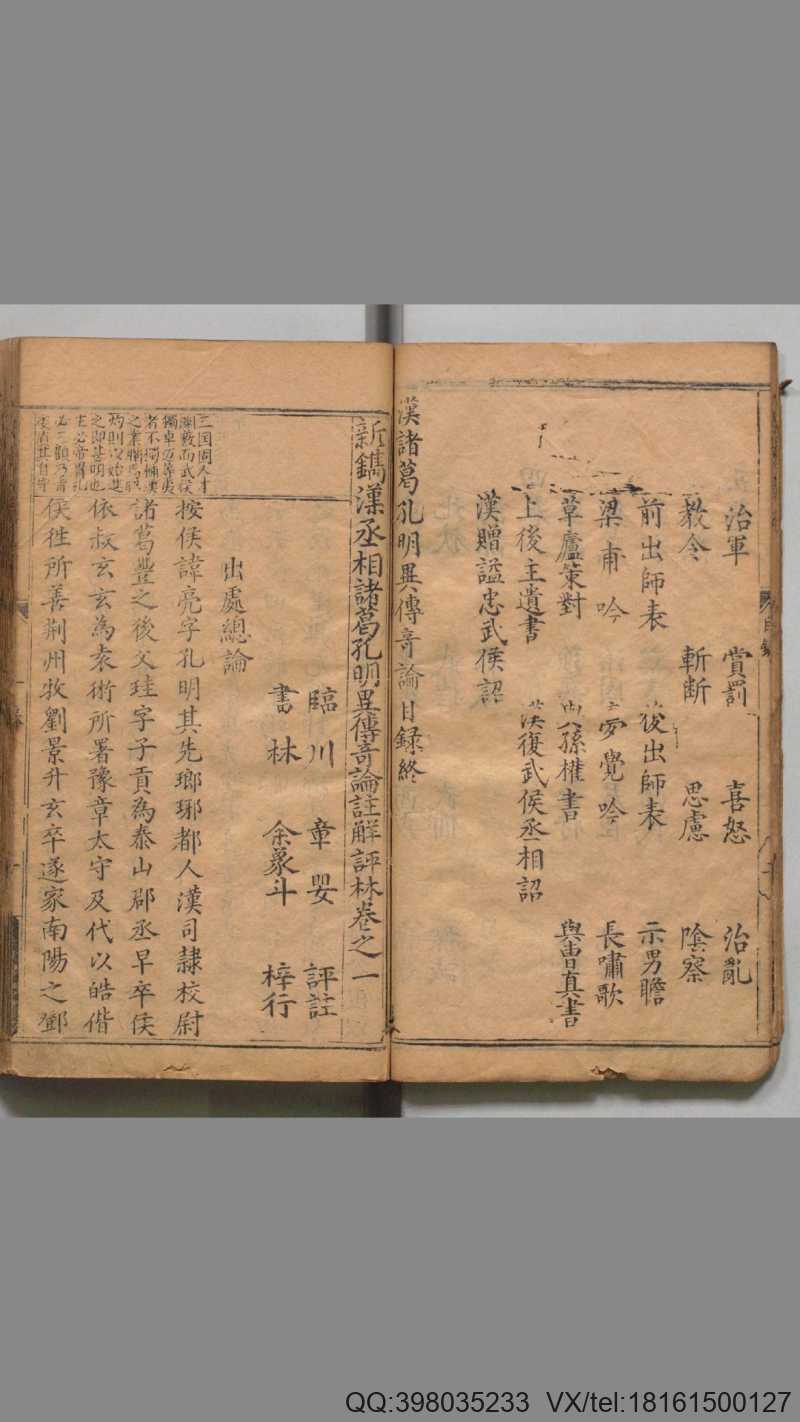 治軍 賞罰 喜怒 治亂
教令 斬断 思慮 陰察
前出師表 後出師表 示男瞻
梁甫吟 夢覺吟 長嘯歌
草廬策對 與孫權書 與曹真書
上後主遺書 漢復武侯丞相詔
漢贈謚忠武侯詔
漢諸葛孔明異傳奇論目録終
新鐫漢丞相諸葛孔明異傳奇論註解評林卷之一
臨川 章嬰 評註
書林 余象斗 梓行
出處總論
三国間人才
淵藪而武侯
獨卓邁等夷
者不獨補漢
按侯諱亮字孔明其先瑯琊都人漢司隷校尉
諸葛豐之後父珪字子貢為泰山郡丞早卒侯
依叔玄玄為袁術所署豫章太守及代以皓偕
侯徃所善荆州牧劉景升玄卒遂家南陽之鄧
QQ:398035233 VX/tel:18161500127